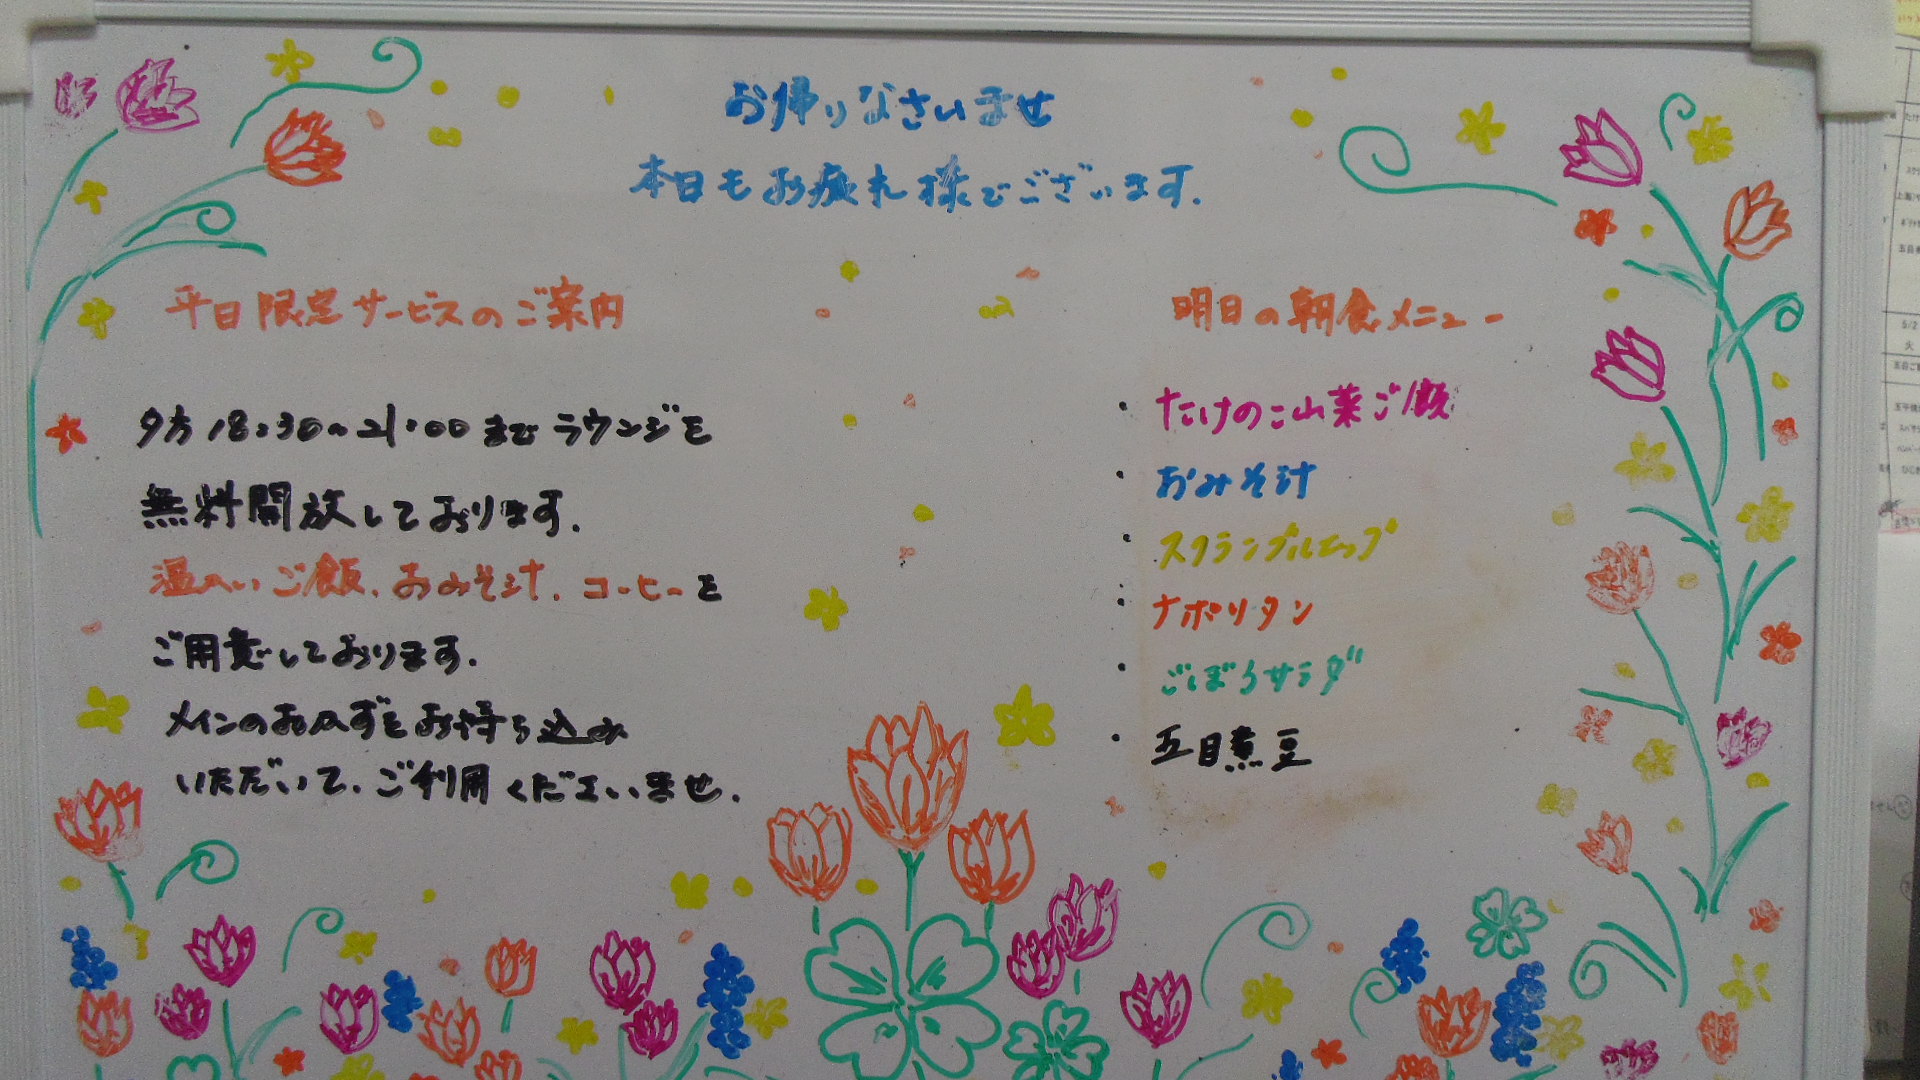 お帰りなさいませ
本日もお疲れ様でございます.
平日限定サービスのご案内
夕方18:30〜21:00までラウンジを
無料開放しております.
温かいご飯、おみそ汁、コーヒーを
ご用意しております.
メインのおかずをお持ち込み
いただいて、ご利用くださいませ.
明日の朝食メニュー
・たけのこ山菜ご飯
・おみそ汁
・スクランブルエッグ
・ナポリタン
・ごぼうサラダ
・五目煮豆